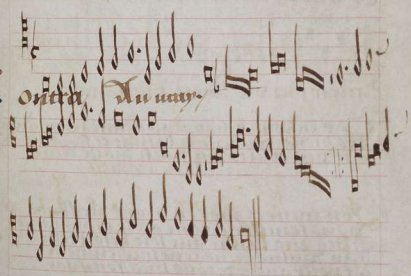 Contra Au may